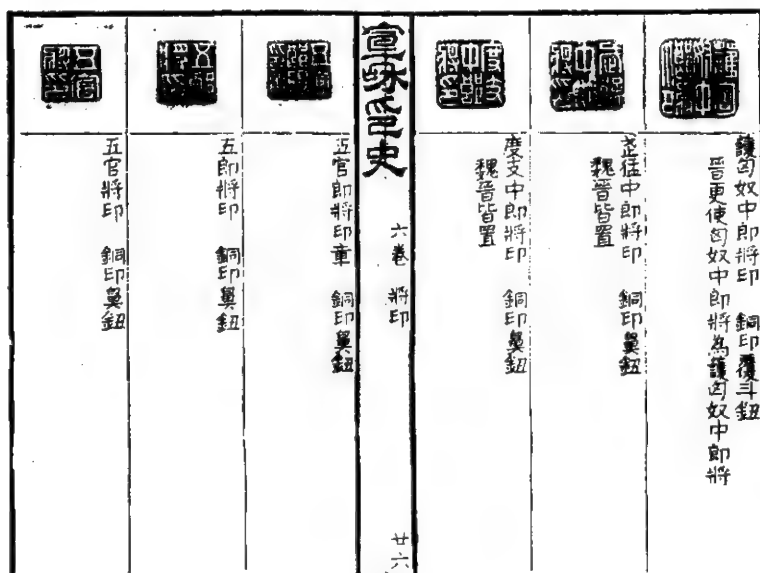 護匈奴中郎將印　銅印覆斗鈕
晉更使匈奴中郎將為護匈奴中郎將
中郎將印　銅印鼻鈕
魏晉皆置
度支中郎將印　銅印鼻鈕
魏晉皆置
宣和印史
六卷　將印
廿六
五官郎將印章　銅印鼻鈕
五郎將印　銅印鼻鈕
五官將印　銅印鼻鈕